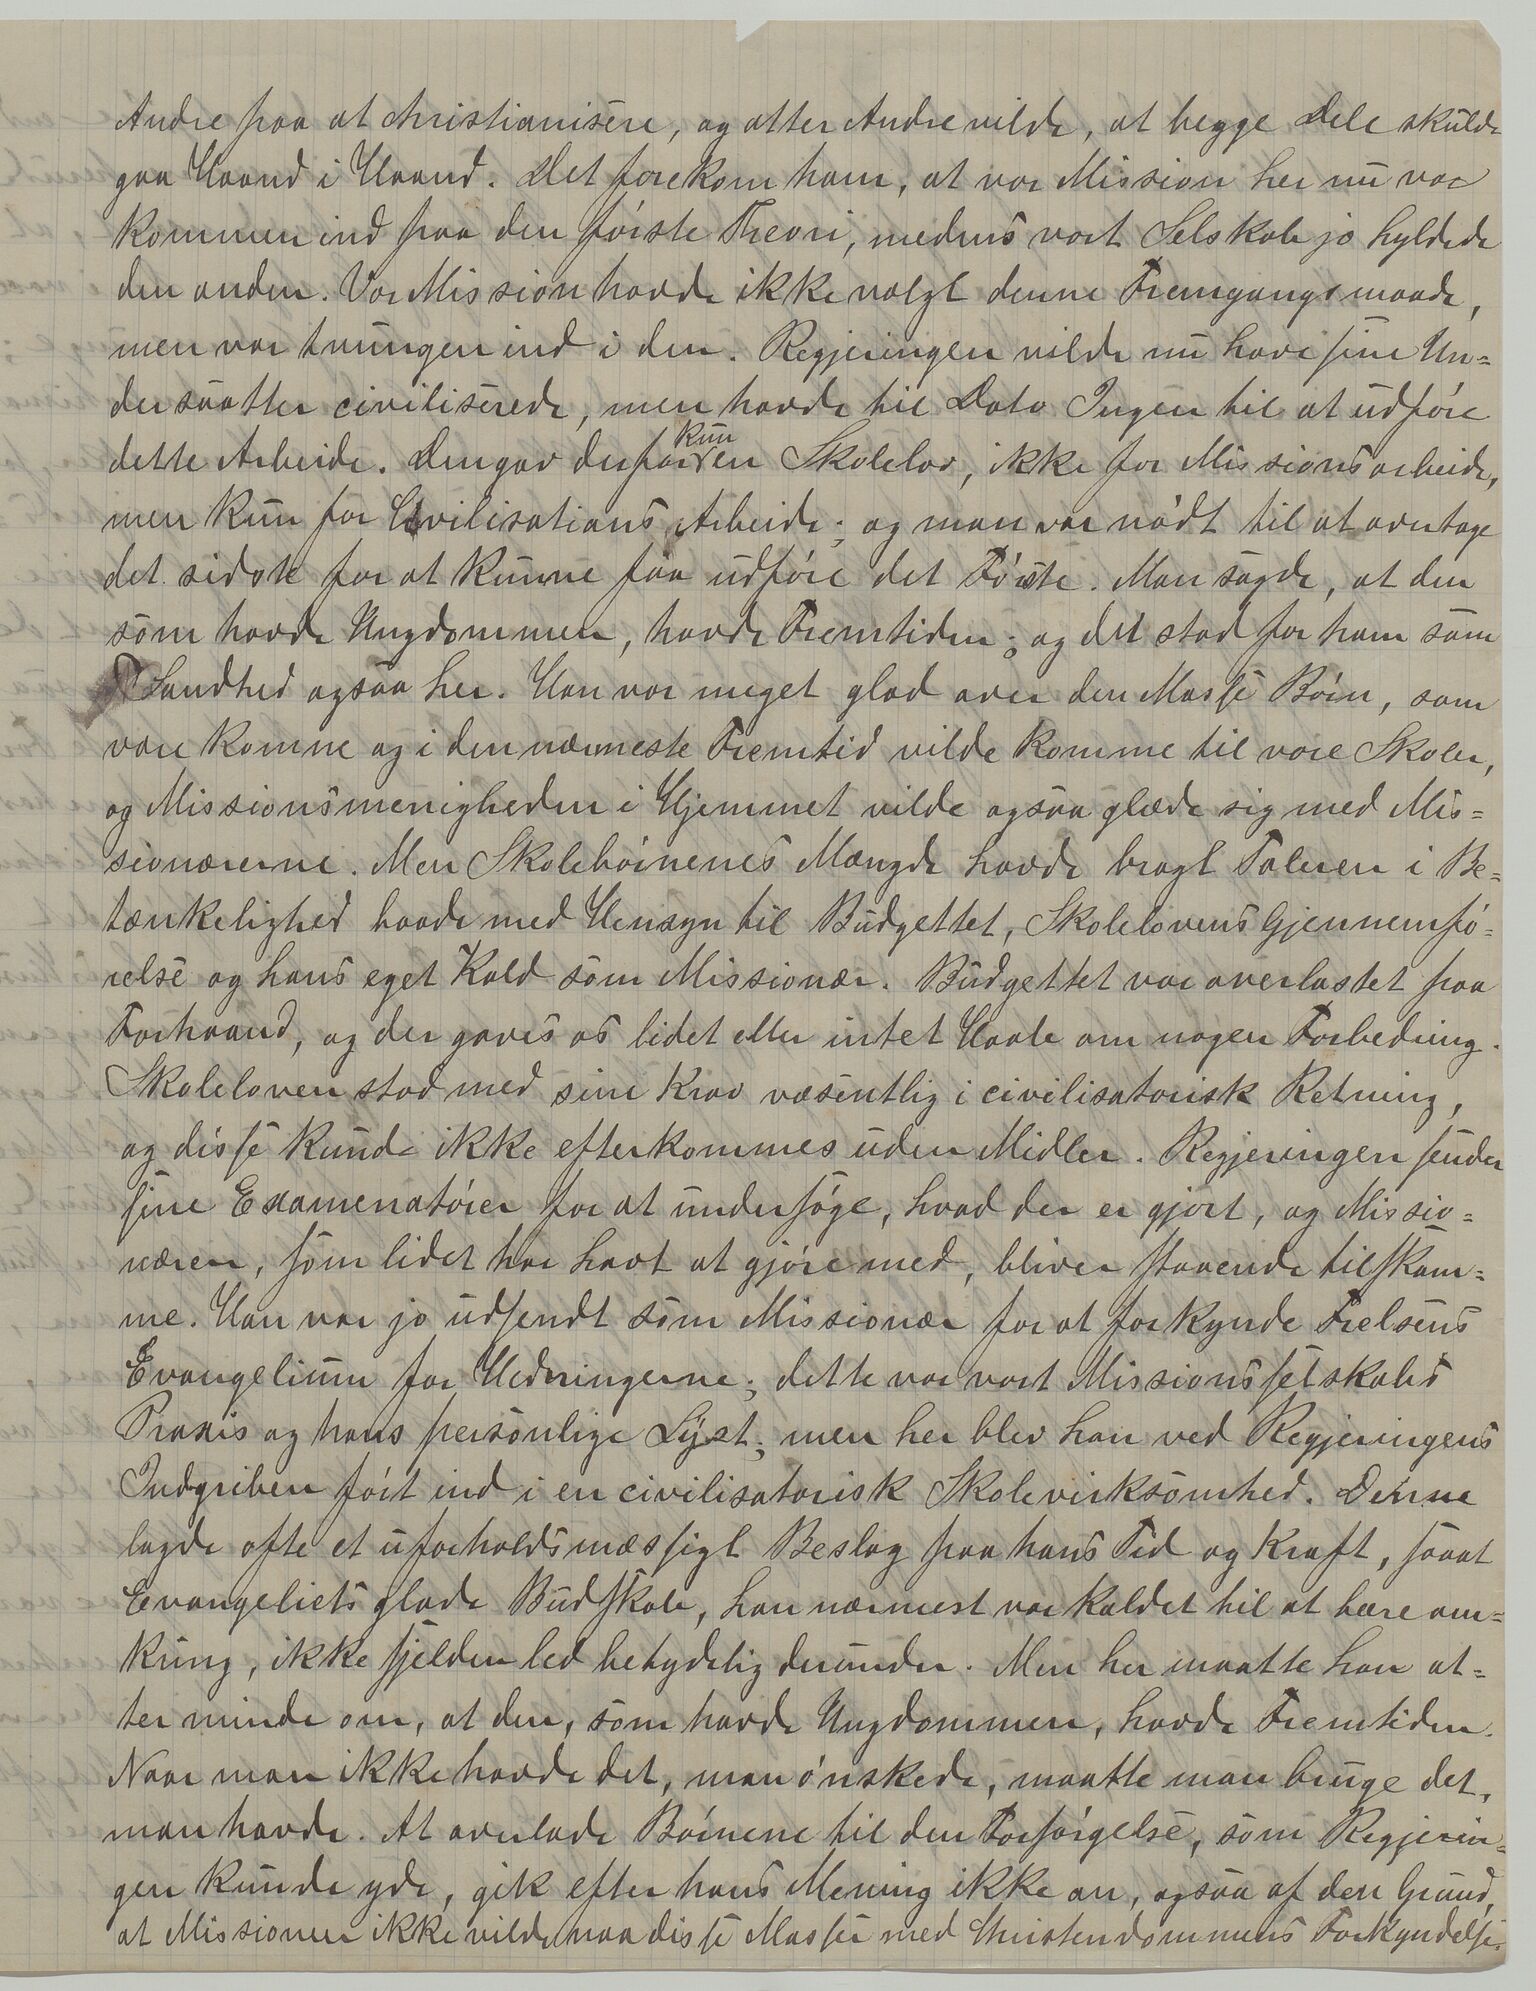 Andre paa at christianisere, og atter Andre vilde, at begge Dele skulde
gaa Haand i Haand. Det forekom ham, at vor Mission her nu var
kommen ind paa den første Theori, medens vort Selskab jo hyldede
den anden. Vor Mission havde ikke valgt denne Fremgangsmaade,
men var tvungen ind i den. Regjeringen vilde nu have sine Un=
dersaatter civiliserede, men havde til Dato Ingen til at udføre
dette Arbeide. Den gav derfor kun en Skolelov, ikke for Missionsarbeide,
men kun for Civilisations Arbeide; og man var nødt til at overtage
det sidste for at kunne faa udføre det Første. Man sagde, at den
som havde Ungdommen, havde Fremtiden; og det stod for ham som
Sandhed ogsaa her. Han var meget glad over den Masse Børn, som
vare komne og i den nærmeste Fremtid vilde komme til vore Skoler,
og Missionsmenigheden i Hjemmet vilde ogsaa glæde sig med Mis=
sionærerne. Men Skolebørnenes Mængde havde bragt Taleren i Be=
tænkelighed baade med Hensyn til Budgettet, Skolelovens Gjennemfø=
relse og hans eget Kald som Missionær. Budgettet var overlastet paa
Forhaand, og der gaves os lidet eller intet Haab om nogen Forbedring.
Skoleloven stod med sine Krav væsentlig i civilisatorisk Retning,
og disse kunde ikke efterkommes uden Midler. Regjeringen sender
sine Examenatører for at undersøge, hvad der er gjort, og Missio=
næren, som lidet har havt at gjøre med, bliver staaende tilskam=
me. Han var jo udsendt som Missionær for at forkynde Frelsens
Evangelium for Hedningerne; dette var vort Missionsselskabs
Praxis og hans personlige Lyst; men her blev han ved Regjeringens
Indgriben ført ind i en civilisatorisk Skolevirksomhed. Denne
lagde ofte et uforholdsmæssigt Beslag paa hans Tid og Kraft, saaat
Evangeliets glade Budskab, han nærmest var kaldet til at bære om=
kring, ikke sjelden led betydelig derunder. Men her maatte han at=
ter minde om, at den, som havde Ungdommen, havde Fremtiden.
Naar man ikke havde det, man ønskede, maatte man bruge det,
man havde. At overlade Børnene til den Forsørgelse, som Regjerin=
gen kunde yde, gik efter hans Mening ikke an, ogsaa af den Grund,
at Missionen ikke vilde naa disse Masser med Christendommens Forkyndelse.